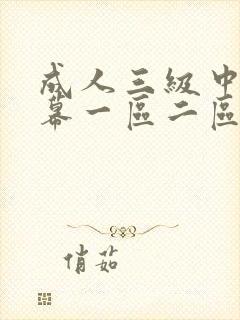 成人三級中
幕一區二區
俏茹